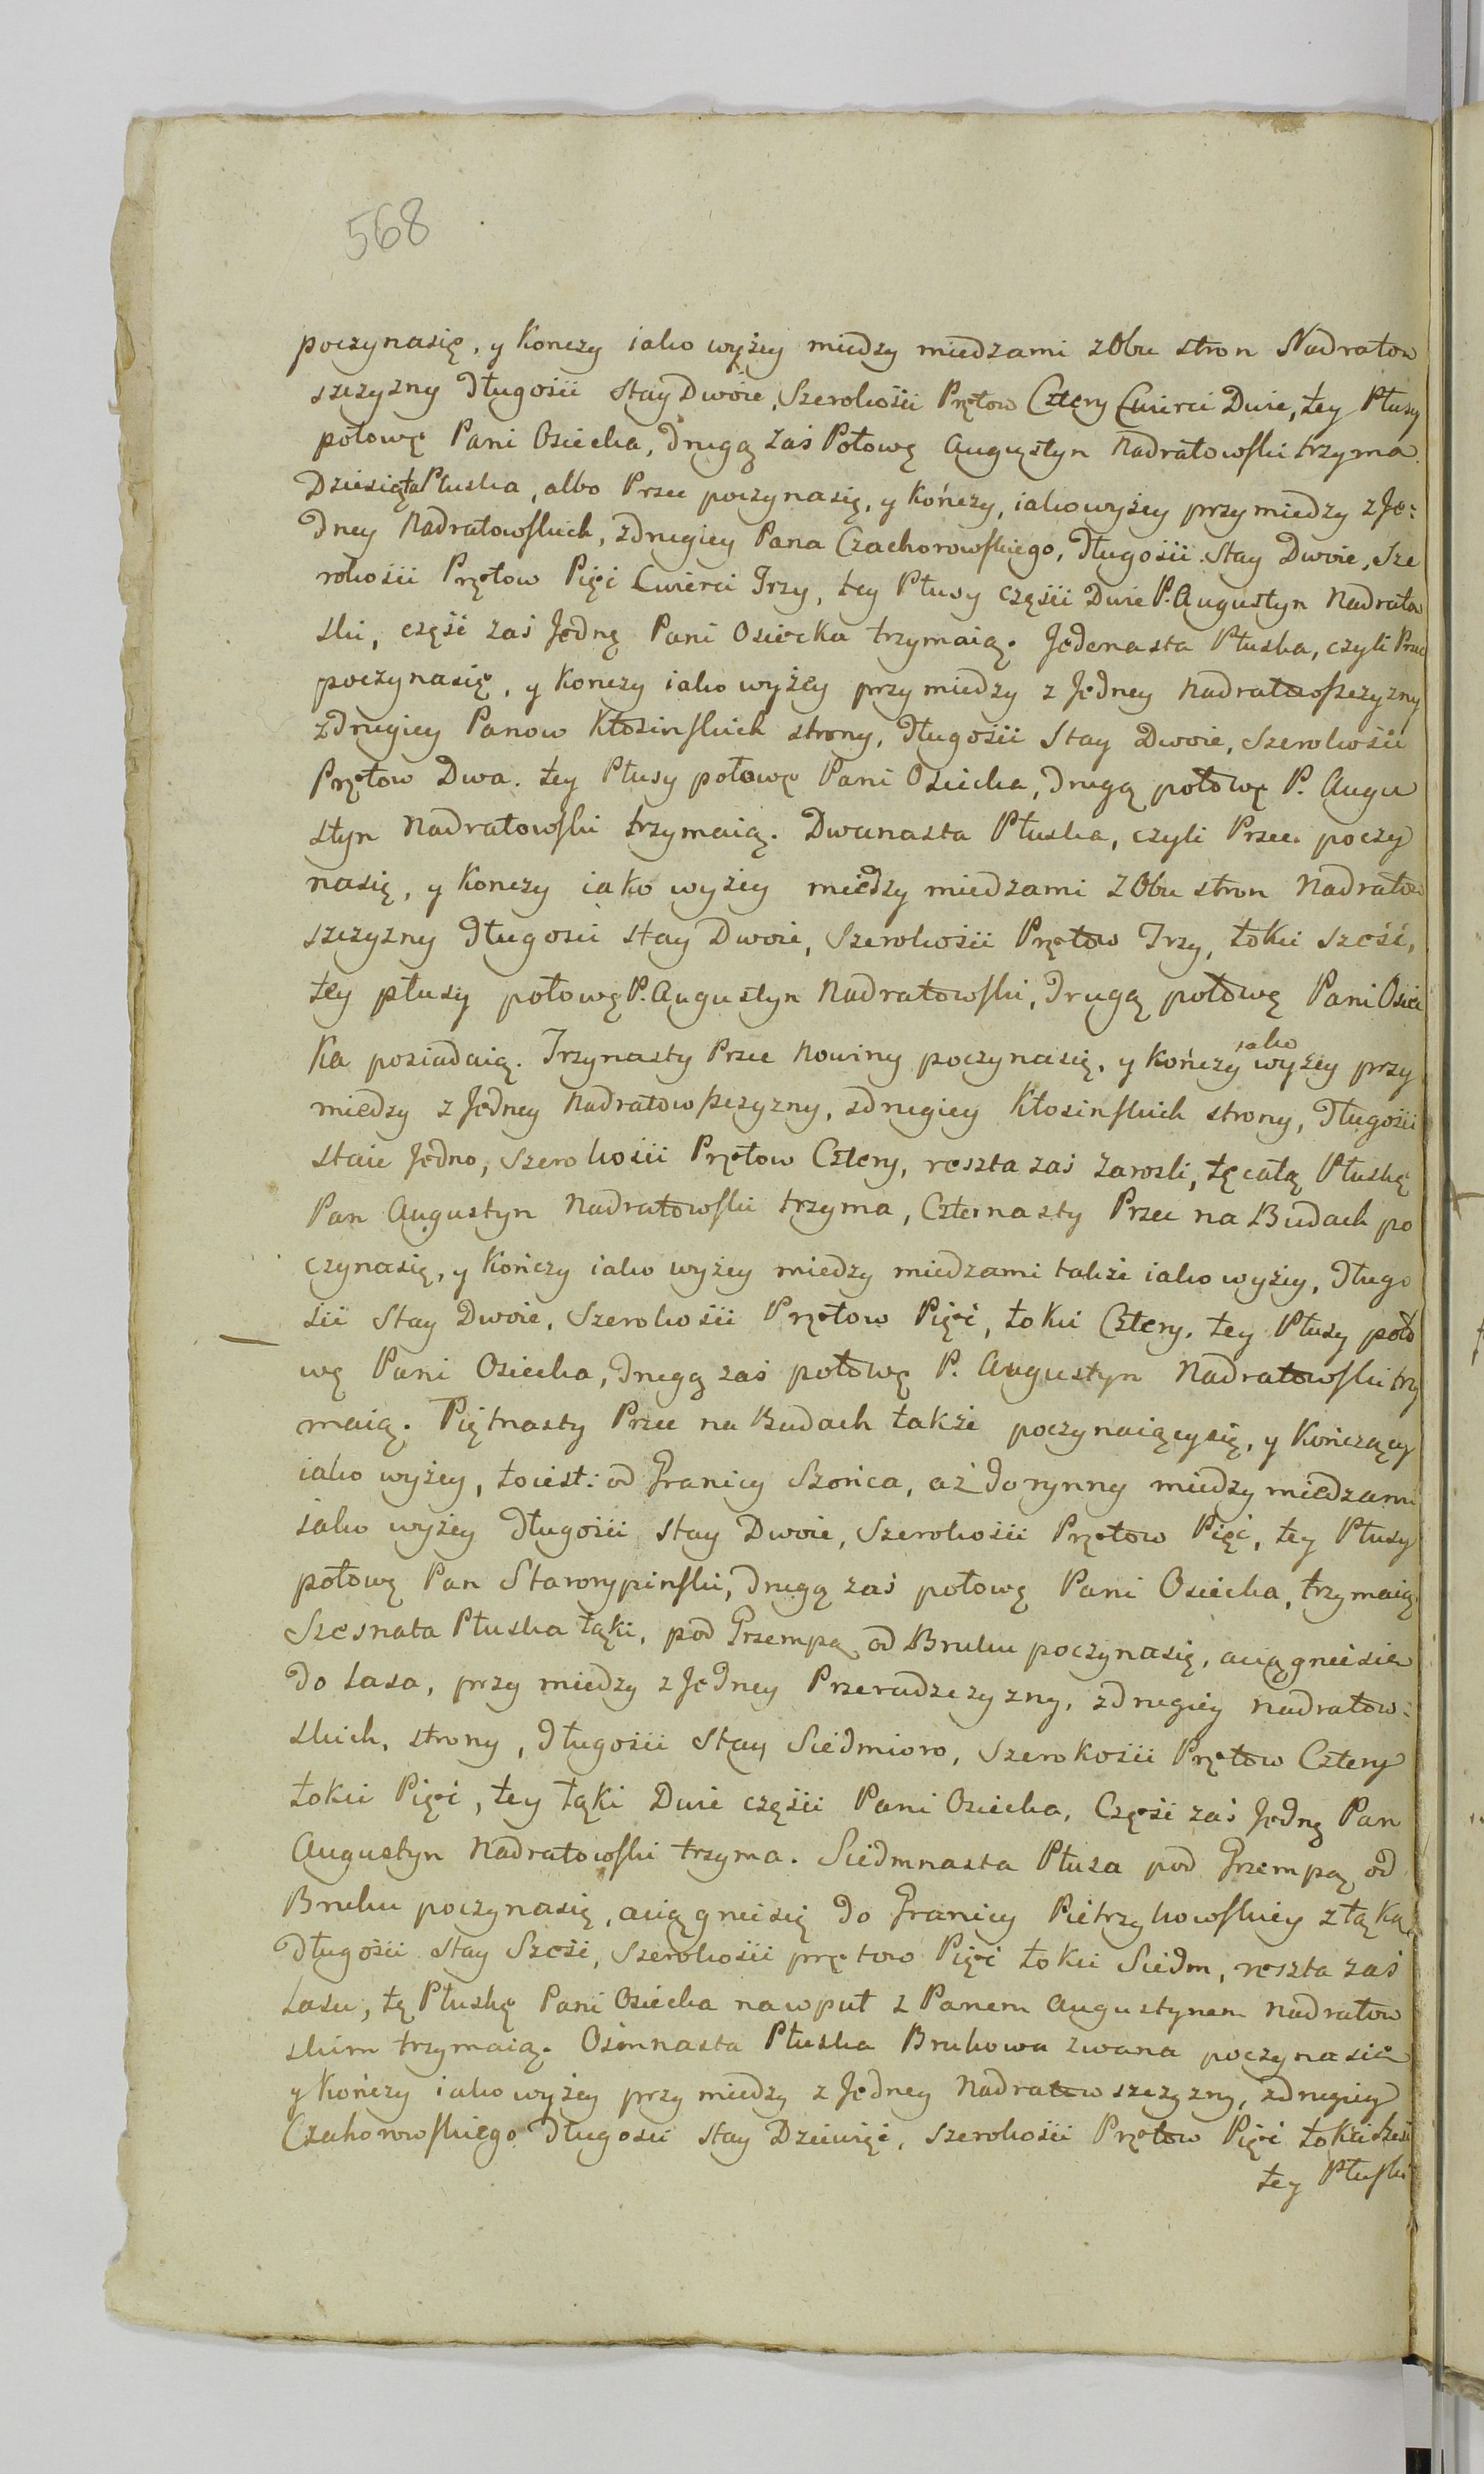 568
poczynasię, y Konczy iako wyżey miedzy miedzami zObu stron Nadratow
szczyzny Długości Stay Dwoie, Szerokości Prętow Cztery Cwierci Dwie, tey Płusy
połowę Pani Osiecka, drugą zaś Połowę Augustyn Nadratowski trzyma.
Dziesięta Płuska, albo Przec poczynasię, y Kończy, iako wyżey przy miedzy z Je:
dney Nadratowskich, zdrugiey Pana Czachorowskiego, Długości Stay Dwoie, Sze
rokości Prętow Pięć Cwierci Trzy, tey Płusy części Dwie P. Augustyn Nadratow
ski, część zaś Jednę Pani Osiecka trzymaią. Jedenasta Płuska, czyli Przec
poczynasię, y Konczy iako wyżey przy miedzy z Jedney Nadratowszczyzny
zdrugiey Panow Kłosinskich strony, Długości Stay Dwoie, Szerokości
Prętow Dwa. tey Płusy połowę Pani Osiecka, drugą połowę P. Augu
styn Nadratowski trzymaią. Dwunasta Płuska, czyli Przec. poczy
nasię, y Konczy iako wyżey miedzy miedzami z Obu stron Nadratow
szczyzny Długosci stay Dwoie, Szerokości Prętow Trzy, łokci sześć,
tey płusy połowę P. Augustyn Nadratowski, drugą połowę Pani Osiec
Ka posiadaią. Trzynasty Przec Nowiny poczynasię, y Kończy iako wyżey przy
miedzy z Jedney Nadratowszczyzny, zdrugiey Kłosinskich strony, Długości
staie Jedno, Szerokości Prętow Cztery, reszta zaś zarośli, tę całą Płuskę
Pan Augustyn Nadratowski trzyma, Czternasty Przec na Budach po
czynasię, y Kończy iako wyżey miedzy miedzami także iako wyżey, Długo
ści Stay Dwoie, Szerokości Prętow Pięć, łokci Cztery, tey Płusy poło
wę Pani Osiecka, drugą zaś połowę P. Augustyn Nadratowski trzy
maią. Piętnasty Przec na Budach także poczynaiącysię, y Kończący
iako wyżey, toiest: od Granicy Szońca, aż do rynny miedzy miedzami
iako wyżey Długości stay Dwoie, Szerokości Prętow Pięć, tey Płusy
połowę Pan Starorypinski, drugą zaś połowę Pani Osiecka, trzymaią.
Szesnata Płuska łąki, pod Grzempą od Bruku poczynasię, aciągnie sie
do Lasa, przy miedzy z Jedney Przeradzczyzny, zdrugiey Nadratow:
skich, strony, Długości Stay Siedmioro, Szerokości Prętow Cztery
łokci Pięć, tey łąki Dwie części Pani Osiecka, Część zaś Jedną Pan
Augustyn Nadratowski trzyma. Siedmnasta Płusa pod Grzempą od
Bruku poczynasię, aciągniesię do Granicy Pietrzykowskiey z łąką,
Długości stay Sześć, Szerokości prętow Pięć łokci Siedm, reszta zaś
Lasu, tę Płuskę Pani Osiecka nawpuł z Panem Augustynem Nadratow
skim trzymaią. Osimnasta Płuska Brukowa zwana poczynasie
y Kończy iako wyżey przy miedzy z Jedney Nadratowszczyzny, zdrugiey
Czahorowskiego Długosci stay Dziewięć, Szerokości Prętow Pięć łokci sześć
tey Płuski